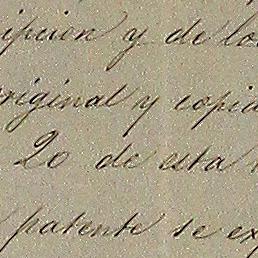 ipcion y de lo
original y copia
20 de esta
patente se ex